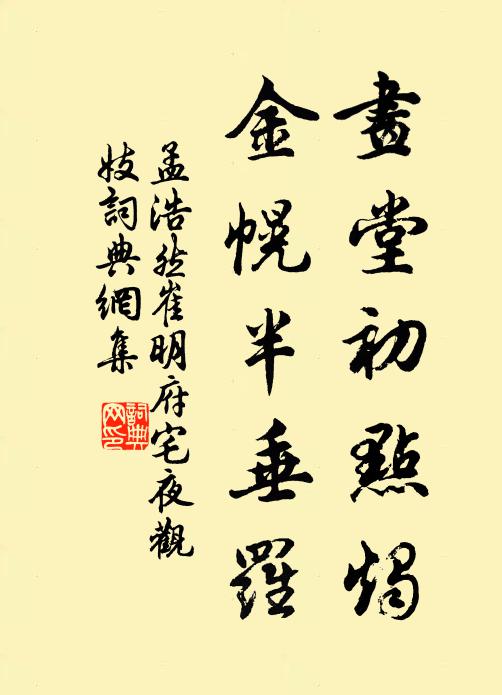 畫堂初點燭
金幌半垂羅
孟浩然崔明府宅夜觀
妓詞典網集
詞典网印